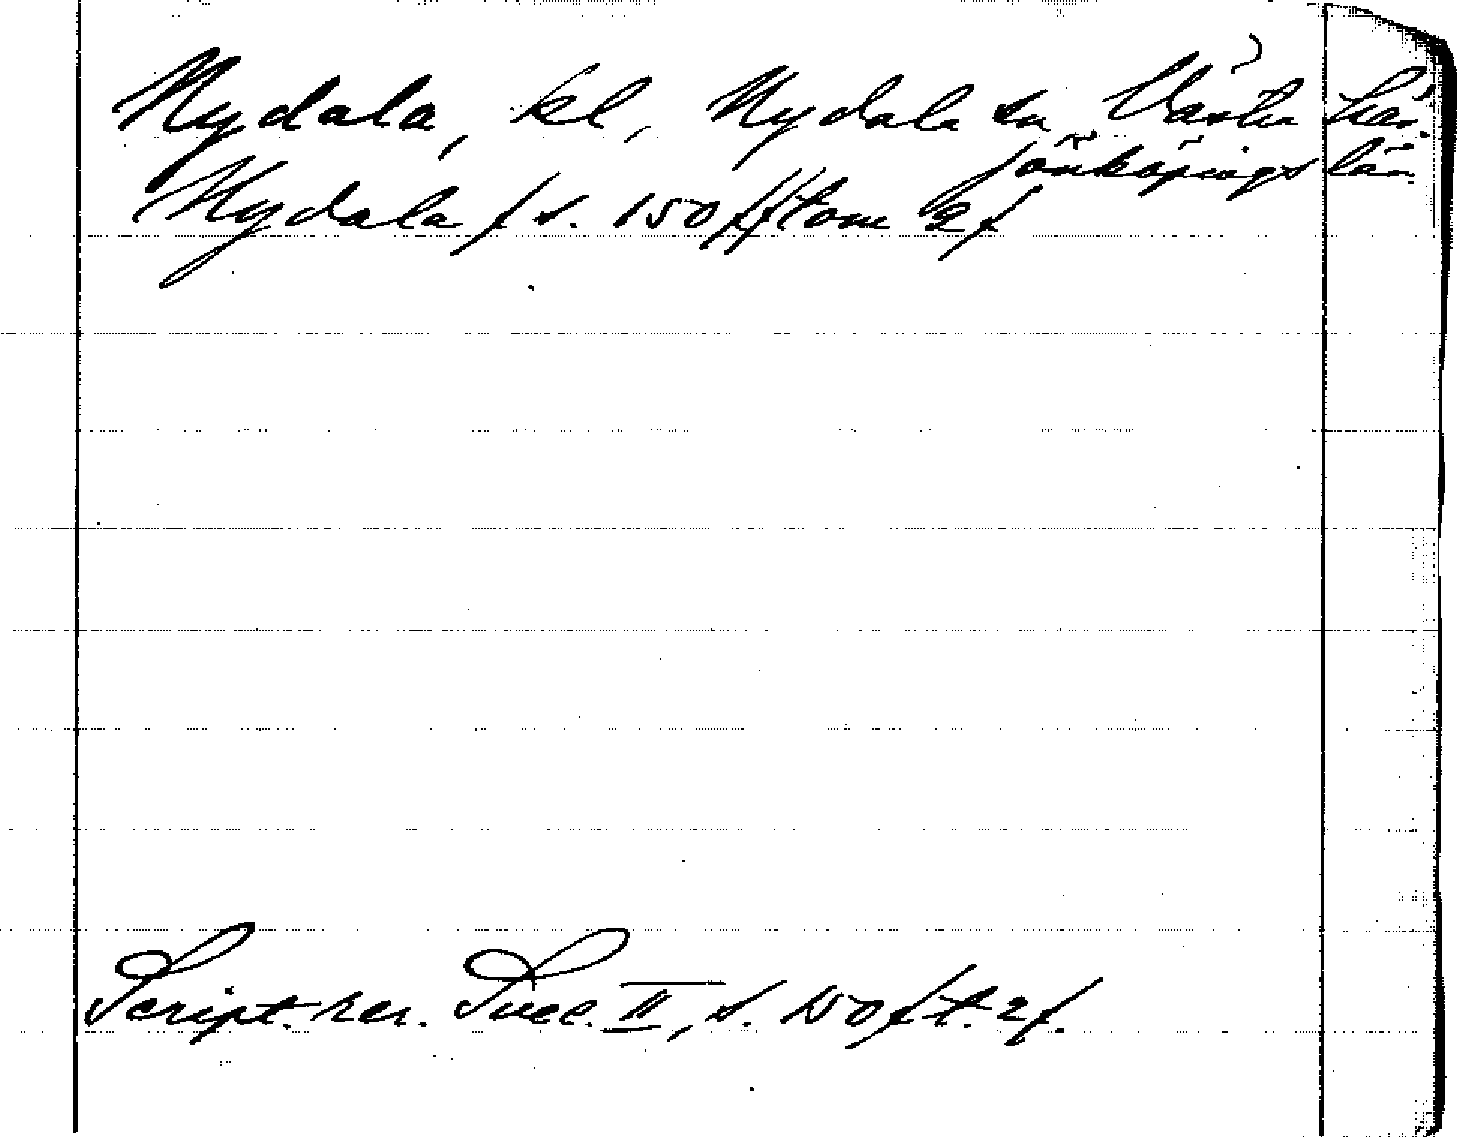 Nydala, kl, Nydala sn Västra här.
Jönköpings län
Nydala / s. 150 // tom 2 /
Script. rer. Svec. II, s. 150 / t. 2 /.